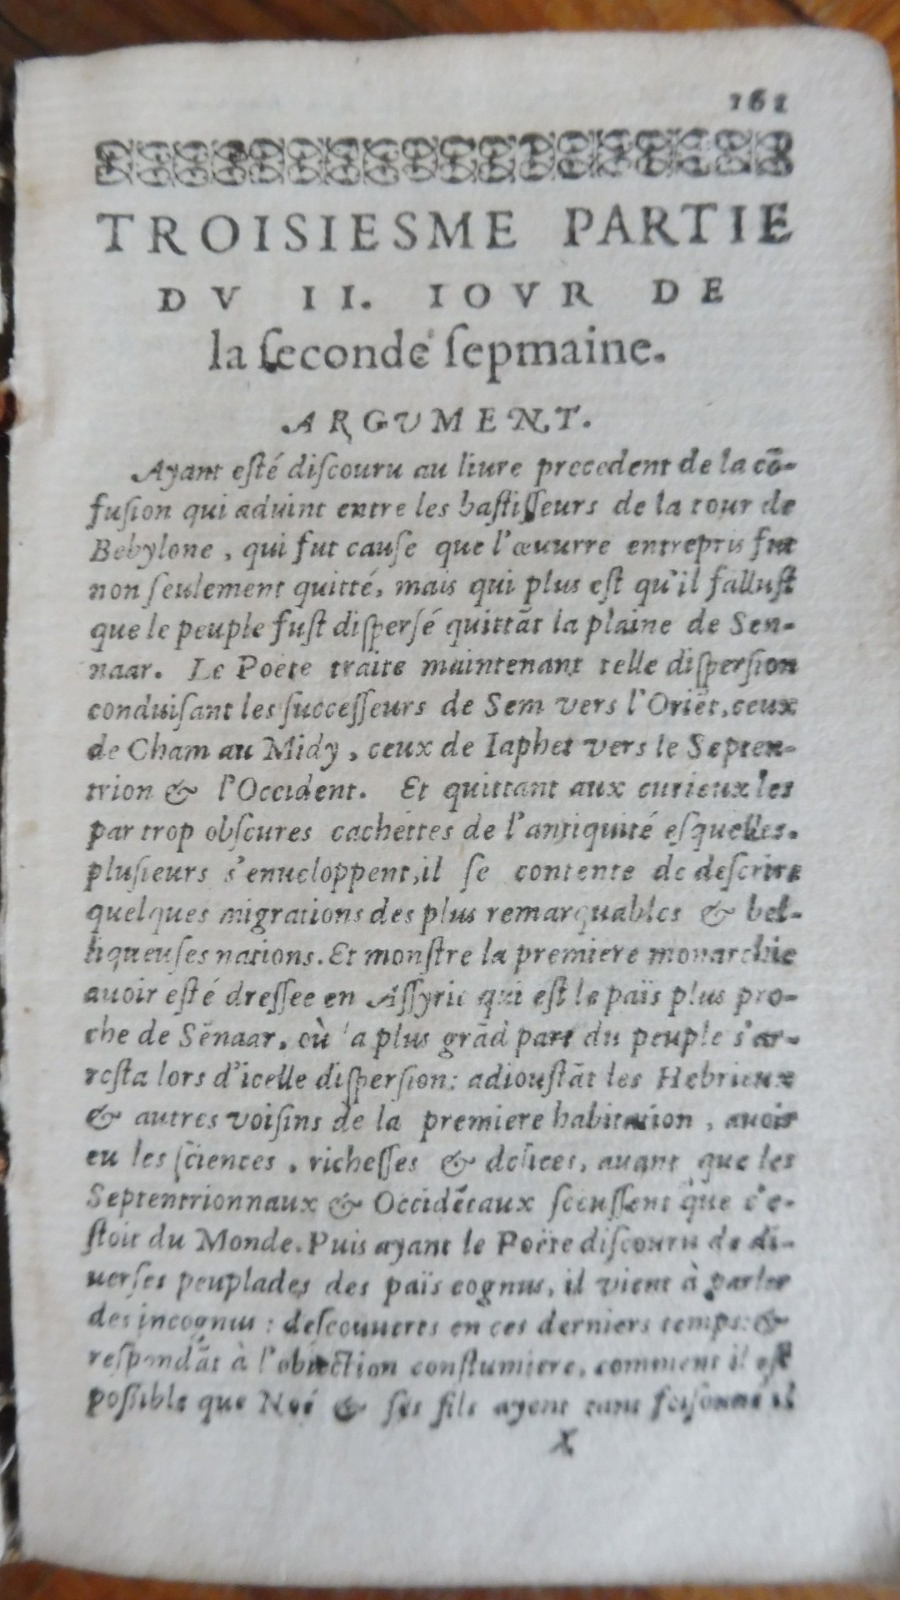 161
TROISIESME PARTIE
DV II. IOVR DE
la ſeconde ſepmaine.
ARGVMENT.
Ayant eſté diſcouru au liure precedent de la cō-
fuſion qui aduint entre les baſtiſſeurs de la tour de
Bebylone, qui fut cauſe que l'œuurre entrepris fut
non ſeulement quitté, mais qui plus eſt qu'il falluſt
que le peuple fuſt diſperſé quittāt la plaine de Sen-
naar. Le Poëte traite maintenant telle diſperſion
conduiſant les ſucceſſeurs de Sem vers l'Oriēt, ceux
de Cham au Midy, ceux de Iaphet vers le Septen-
trion & l'Occident. Et quittant aux curieux les
par trop obſcures cachettes de l'antiquité eſquelles
pluſieurs s'enueloppent, il ſe contente de deſcrire
quelques migrations des plus remarquables & bel-
liqueuſes nations. Et monſtre la premiere monarchie
auoir eſté dreſſee en Aſſyrie qui eſt le païs plus pro-
che de Sēnaar, où la plus grād part du peuple s'ar-
reſta lors d'icelle diſperſion: adiouſtāt les Hebrieux
& autres voiſins de la premiere habitation, auoir
eu les ſciences, richeſſes & delices, auant que les
Septentrionnaux & Occidētaux ſceuſſent que c'e-
ſtoit du Monde. Puis ayant le Poëte diſcouru de di-
uerſes peuplades des païs cognus, il vient à parler
des incognus: deſcouuerts en ces derniers temps: &
reſpondāt à l'obiection conſtumiere, comment il eſt
poſſible que Noé & ſes fils ayent tant foiſonné il
X